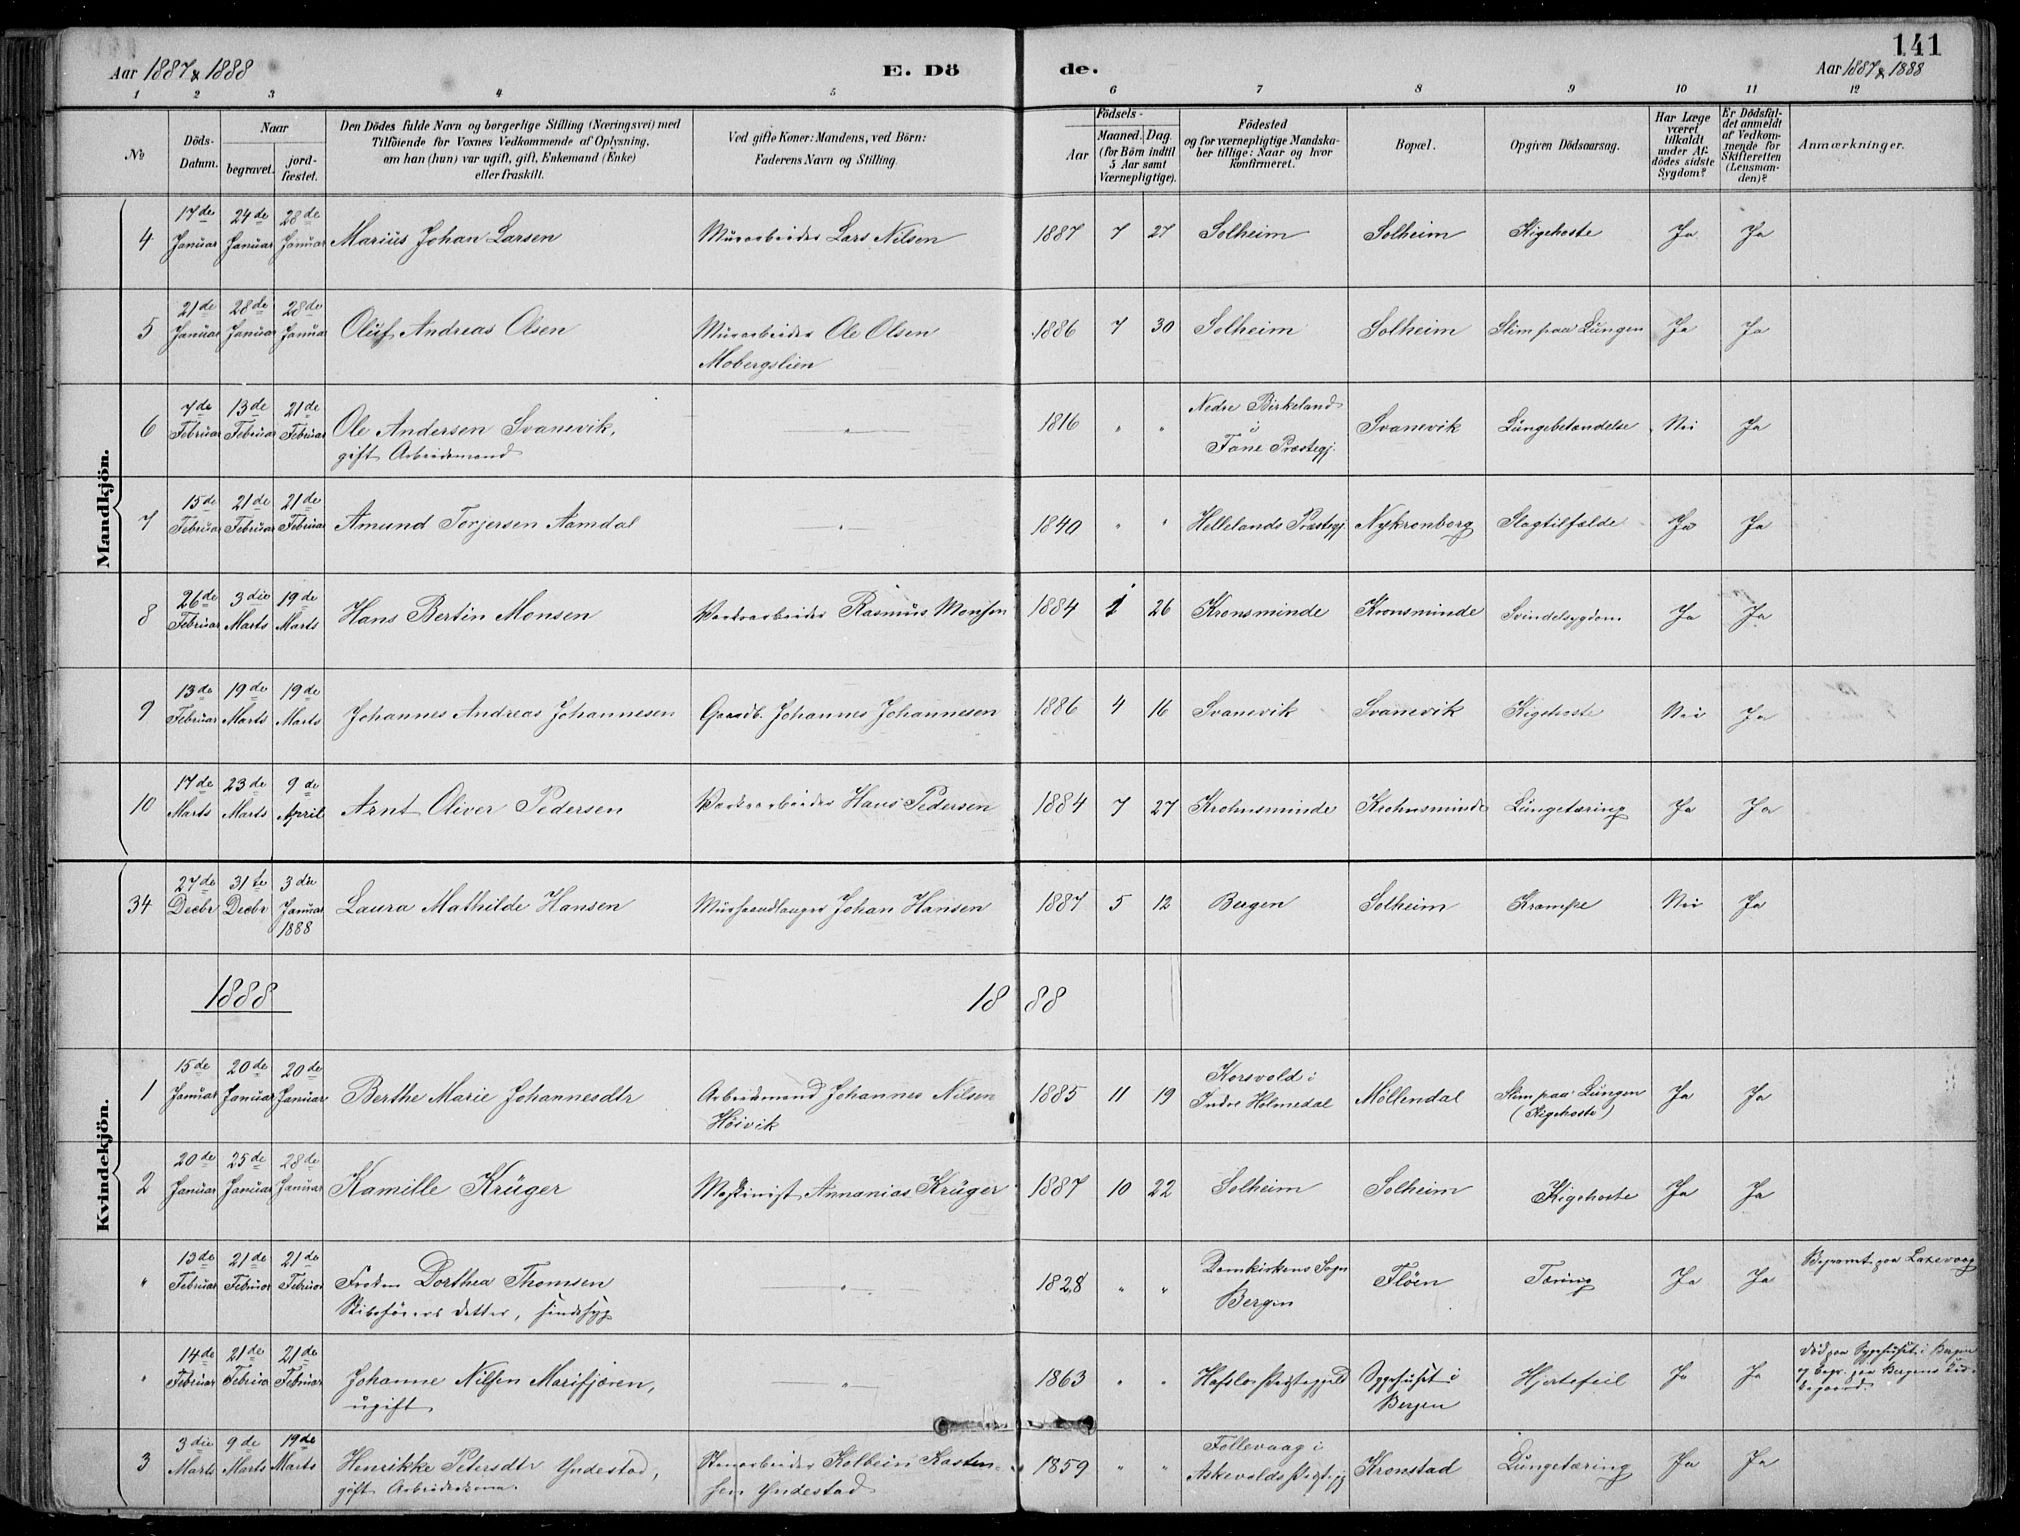 141
Aar 1887 & 1888
E. Dö
de.
Aar 1887 & 1888
1 2 3 4 5 6 7 8 9 10 11 12
No
Döds-
Datum.
Naar
begravet.
jord-
fæstet.
Den Dödes fulde Navn og borgerlige Stilling (Næringsvei) med
Tilföiende for Voxnes Vedkommende af Oplysning,
om han (hun) var ugift, gift, Enkemand (Enke)
eller fraskilt.
Ved gifte Koner: Mandens, ved Börn:
Faderens Navn og Stilling.
Födsels-
Aar
Maaned. Dag.
(for Börn indtil
5 Aar samt
Værnepligtige).
Födested
og for værnepligtige Mandska-
ber tillige: Naar og hvor
konfirmeret.
Bopæl.
Opgiven Dödsaarsag.
Har Læge
været
tilkaldt
under Af-
dödes sidste
Sygdom?
Er Dödsfal-
det anmeldt
af Vedkom-
mende for
Skifteretten
(Lensman-
den)?
Anmærkninger.
Mandkjön.
4 17de Januar 24de Januar 28de Januar Marius Johan Larsen Murarbeider Lars Nilsen 1887 7 27 Solheim Solheim Kigehoste Ja Ja
5 21de Januar 28de Januar 28de Januar Oluf Andreas Olsen Murarbeider Ole Olsen 1886 7 30 Solheim Solheim Slim paa Lungen Ja Ja
Mobergslien
6 7de Februar 13de Februar 21de Februar Ole Andersen Svanevik, " 1816 " " Nedre Birkeland Svanevik Lungebetændelse Nei Ja
gift Arbeidsmand
i
Fane Præstegj.
7 15de Februar 21de Februar 21de Februar Amund Torjersen Aamdal " 1840 " " Hellelands Præstegj. Nykronborg Slagtilfælde Ja Ja
8 26de Februar 3die Marts 19de Marts Hans Bertin Monsen Værksarbeider Rasmus Monsen 1884 1 26 Kronsminde Kronsminde Svindelsygdom Ja Ja
9 13de Februar 19de Marts 19de Marts Johannes Andreas Johannesen Gaardb. Johannes Johannesen 1886 4 16 Svanevik Svanevik Kigehoste Nei Ja
10 17de Marts 23de Marts 9de April Arnt Oliver Pedersen Værksarbeider Hans Pedersen 1884 7 27 Krohnsminde Krohnsminde Lungetæring Ja Ja
Kvindekjön.
34 27de Decbr 31te Decbr 3die Januar 1888 Laura Mathilde Hansen Murhandlanger Johan Hansen 1887 5 12 Bergen Solheim Krampe Nei Ja
1888 18 88
1 15de Januar 20de Januar 20de Januar Berthe Marie Johannesdtr Arbeidsmand Johannes Nilsen 1885 11 19 Korsvold i Möllendal Slim paa Lungen Ja Ja
Höivik
Indre Holmedal
(Kigehoste)
2 20de Januar 25de Januar 28de Januar Kamille Krüger Maskinist Annanias Krüger 1887 10 22 Solheim Solheim Kigehoste Ja Ja
" 13de Februar 21de Februar 21de Februar Fröken Dorthea Thomsen " 1828 " " Domkirkens Sogn Flöen Tæring Ja Ja Begravet paa Laxevaag
Skibsförers Datter, sindssyg
Bergen
" 14de Februar 21de Februar 21de Februar Johanne Nilsen Marifjæren, " 1863 " " Hafslo Præstegjeld Sygehuset i Hjertefeil Ja Ja Död paa Sygehuset i Bergen
ugift
Bergen
og begr. paa Bergens
3 3die Marts 9de Marts 19de Marts Henrikke Petersdtr Yndestad, Stenarbeider Kolbein Karsten- 1859 " " Follevaag i Kronstad Lungetæring Ja Ja
gift Arbeiderkone.
sen Yndestad
Askevolds Prstgj